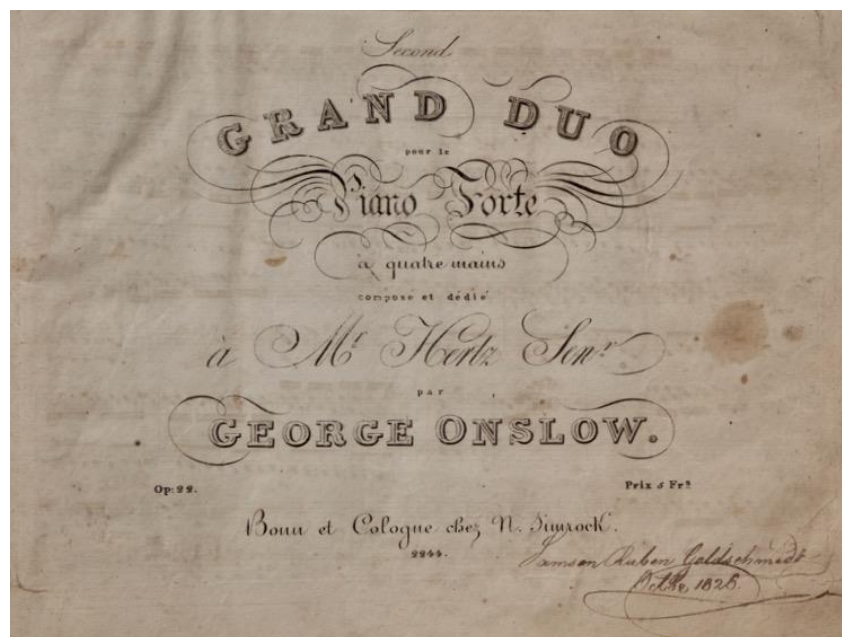 Second
GRAND DUO
pour le
Piano Forte
à quatre mains
composé et dédié
à Mr Hertz Senr
par
GEORGE ONSLOW.
Op: 22. Prix 5 Frs
Bonn et Cologne chez N. Simrock.
2244.
Samson Ruben Goldschmidt
Octbr, 1826.